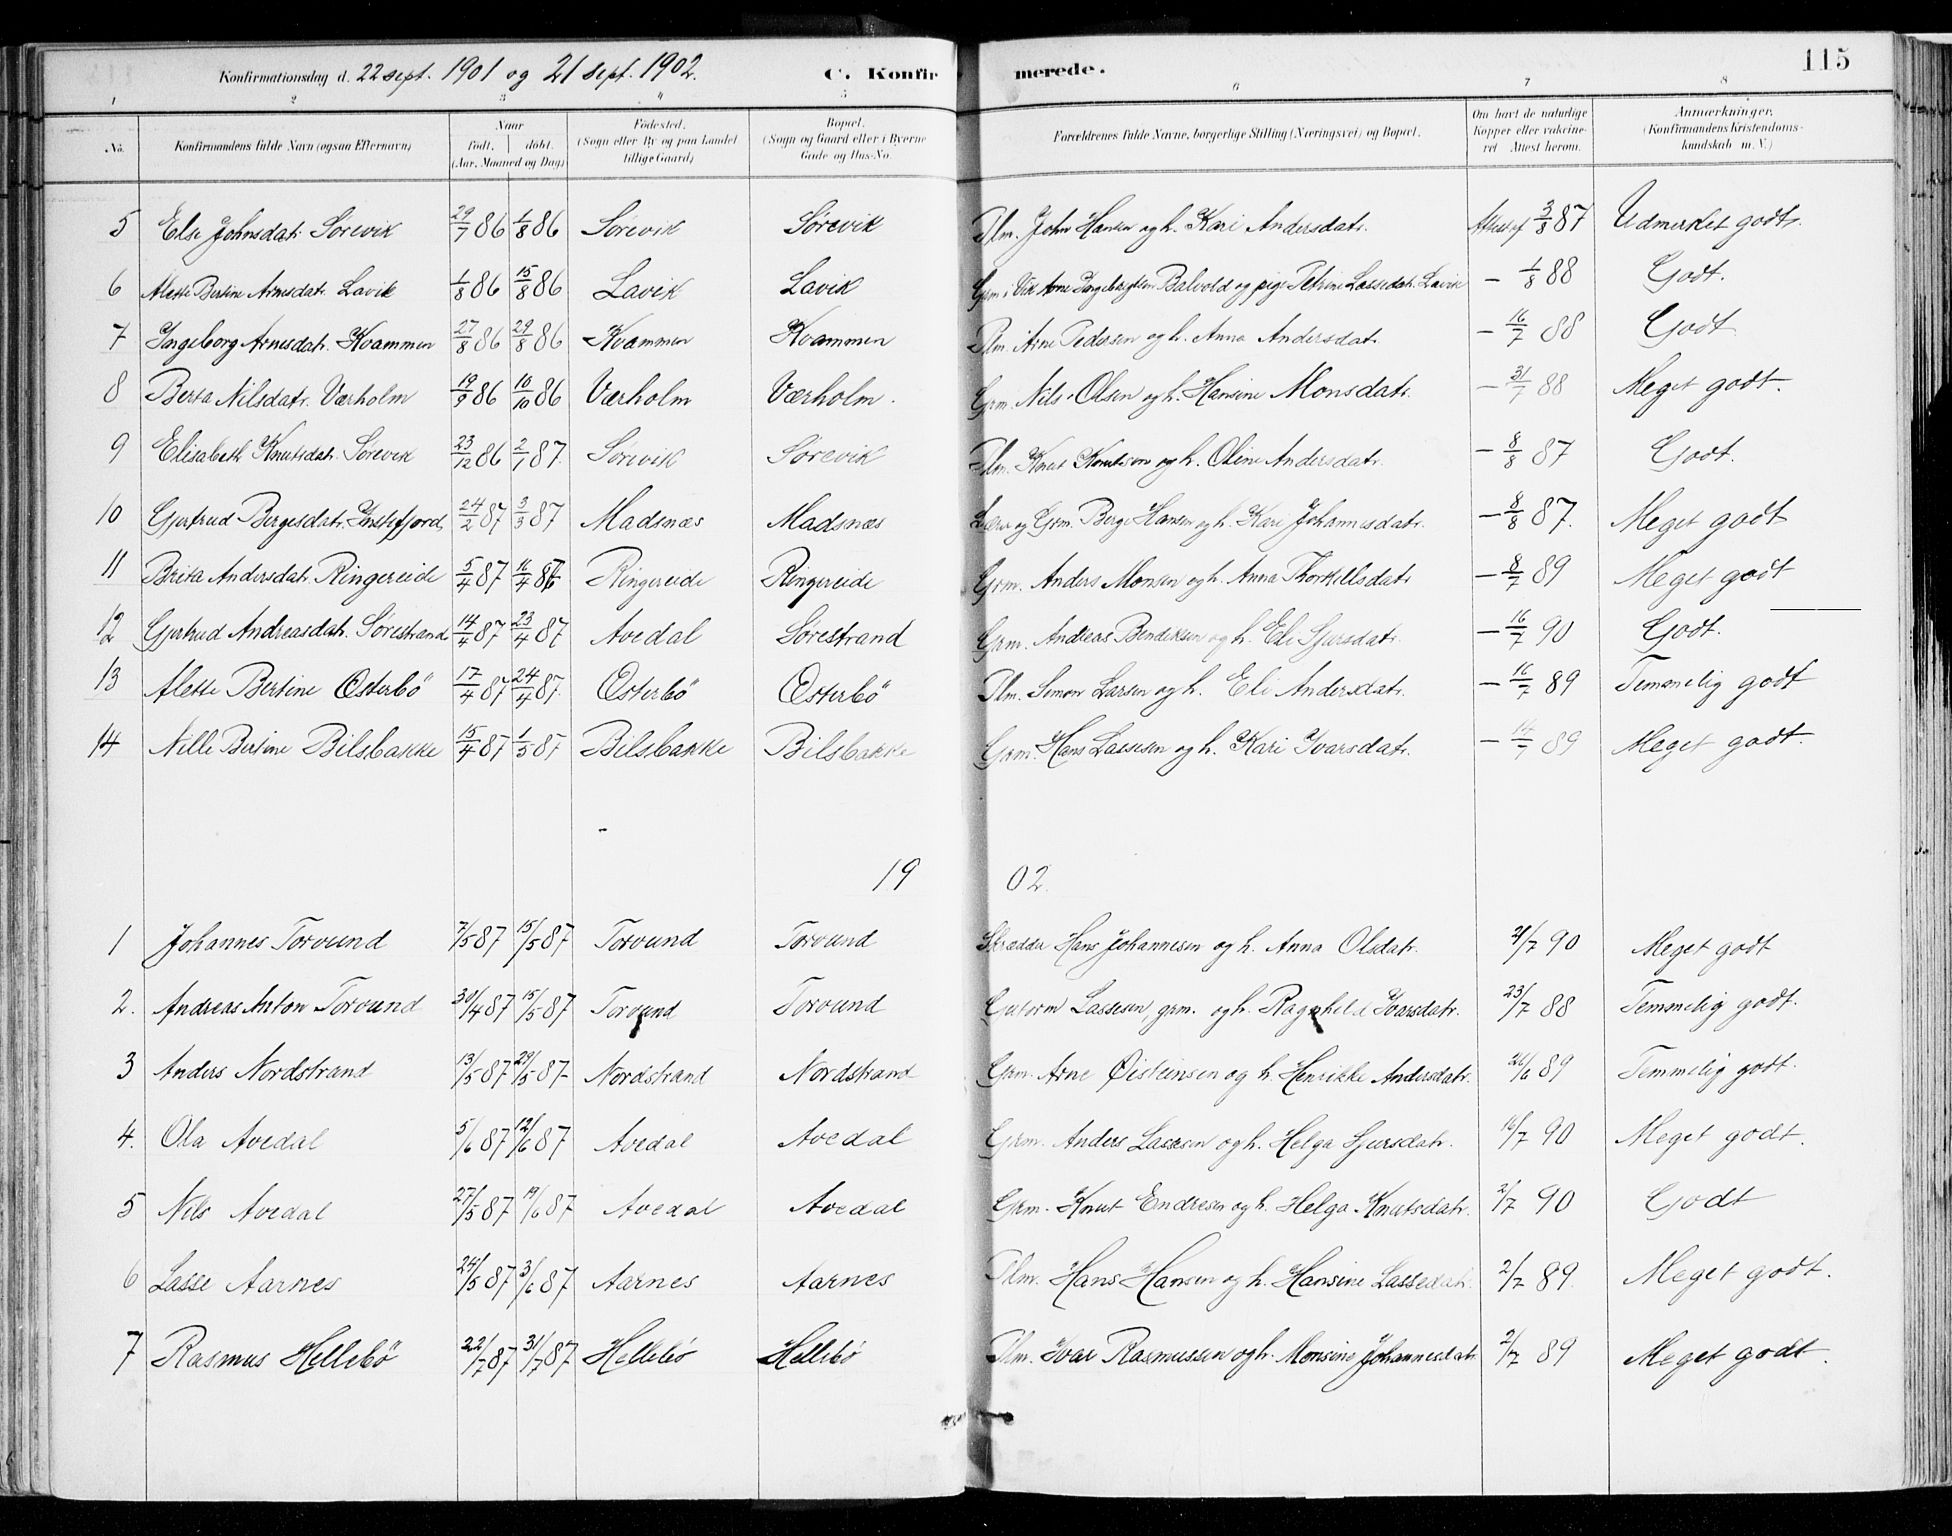 115
Konfirmationsdag d. 22 sept. 1901 og 21 sept. 1902. C. Konfirmerede.
1 2 3 4 5 6 7 8
No. Konfirmandens fulde Navn (ogsaa Efternavn) Naar født. døbt. (Aar, Maaned og Dag) Fødested. (Sogn eller By og paa Landet tillige Gaard) Bopæl. (Sogn og Gaard eller i Byerne Gade og Hus-No. Forældrenes fulde Navne, borgerlige Stilling (Næringsvei) og Bopæl. Om havt de naturlige Kopper eller vakcineret. Attest herom. Anmærkninger. (Konfirmandens Kristendomskundskab m. V.)
5 Else Johnsdatr. Sørevik 29/7 86 1/8 86 Sørevik Sørevik Plm. John Hansen og h. Kari Andersdatr. Attest af 3/8 87 Udmerket godt.
6 Alette Bertine Arnesdatr. Lavik 1/8 86 15/8 86 Lavik Lavik Grm. i Vik Arne Ingebrigtsen Balvold og pige Petrine Lassedatr. Lavik – 1/8 88 Godt.
7 Ingeborg Arnesdatr. Kvammen 27/8 86 29/8 86 Kvammen Kvammen Plm. Arne Pedersen og h. Anna Andersdatr. – 16/7 88 Godt
8 Berta Nilsdatr. Værholm 19/9 86 10/10 86 Værholm Værholm. Grm. Nils Olsen og h. Hansine Monsdatr. – 31/7 88 Meget godt.
9 Elisabeth Knutsdatr. Sørevik 23/12 86 2/1 87. Sørevik Sørevik Plm. Knut Knutsen og h. Oline Andersdatr. – 8/8 87 Godt.
10 Gjertrud Bergesdatr. Instefjord, 24/2 87 3/3 87 Madsnæs Madsnæs Lærer og Grm. Berge Hansen og h. Kari Johannesdatr. – 8/8 87. Meget godt
11 Brita Andersdatr. Ringereide 5/4 87 11/4 87 Ringereide Ringereide Grm. Anders Monsen og h. Anna Thorkillsdatr. – 8/7 89 Meget godt
12 Gjertrud Andreasdatr. Sørestrand 14/4 87 23/4 87 Avedal Sørestrand Grm. Andreas Bendiksen og h. Eli Sjursdatr. – 16/7 90 Godt.
13 Alette Bertine Østerbö 17/4 87 24/4 87. Østerbö Østerbö Plm. Simon Larsen og h. Eli Andersdatr. – 16/7 89 Temmelig godt
14 Nille Bertine Bilsbakke 15/4 87 1/5 87 Bilsbakke Bilsbakke Grm. Hans Lassesen og h. Kari Ivarsdatr. – 14/7 89 Meget godt.
1902.
1 Johannes Torvund 7/5 87 15/5 87 Torvund Torvund Skrædder Hans Johannesen og h. Anna Olsdatr. 21/7 90 Meget godt
2. Andreas Anton Torvund 30/4 87 15/5 87 Torvund Torvund Gutorm Lassesen grm. og h. Ragnhild Ivarsdatr. 23/7 88 Temmelig godt.
3 Anders Nordstrand 13/5 87 29/5 87 Nordstrand Nordstrand Grm. Arne Øisteinsen og h. Henrikke Andersdatr. 26/6 89 Temmelig godt.
4. Ola Avedal 5/6 87 12/6 87 Avedal Avedal Grm. Anders Lassesen og h. Helga Sjursdatr. 16/7 90 Meget godt.
5 Nils Avedal 27/5 87 19/6 87 Avedal Avedal Grm. Knut Endresen og h. Helga Knutsdatr. 2/7 90 Godt
6 Lasse Aarnes 24/5 87 3/6 87 Aarnes Aarnes Plm. Hans Hansen og h. Hansine Lassedatr. 2/7 89. Meget godt.
7 Rasmus Hellebö 22/7 87 31/7 87 Hellebö Hellebö Plm. Ivar Rasmussen og h. Monsine Johannesdatr 2/7 89 Meget godt.